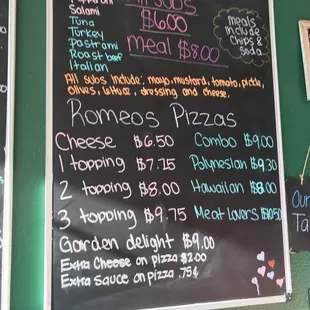 Salami
Tuna
Turkey
Pastrami
Roast beef
Italian
$6.00
meal $8.00
Meals
Include
Chips &
Soda
All subs include: mayo, mustard, tomato, pickle,
olives, lettuce, dressing and cheese.
Romeos Pizzas
Cheese $6.50 Combo $9.00
1 topping $7.75 Polynesian $9.30
2 topping $8.00 Hawaiian $8.00
3 topping $9.75 Meat Lovers $10.50
Garden delight $9.00
Extra Cheese on pizza $2.00
Extra Sauce on pizza .75¢